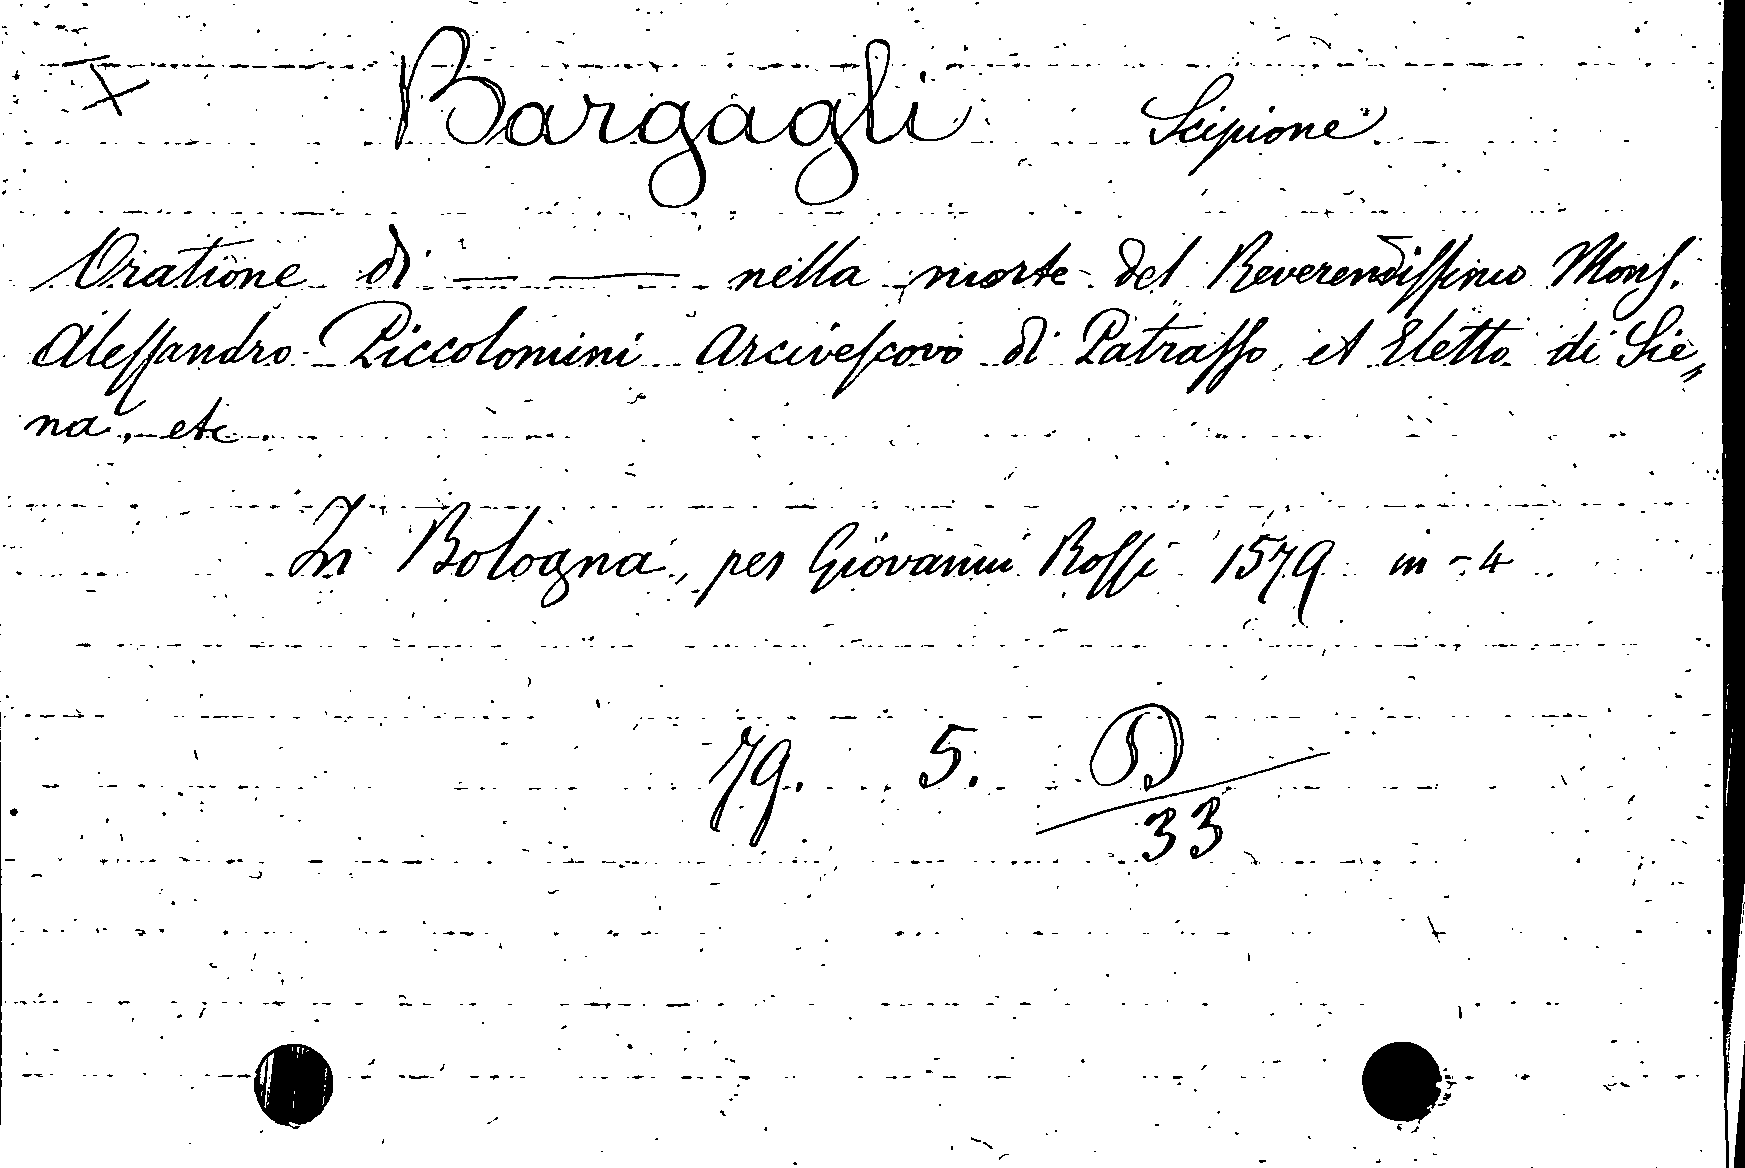 X Bargagli Scipione
Oratione di — — nella morte del Reverendiſſimo Monſ.
Aleſſandro Piccolomini Arciveſcovo di Patraſſo, et Eletto di Sie„
na, etc.
In Bologna, per Giovanni Roſſi 1579 in-4
79. 5. D
33